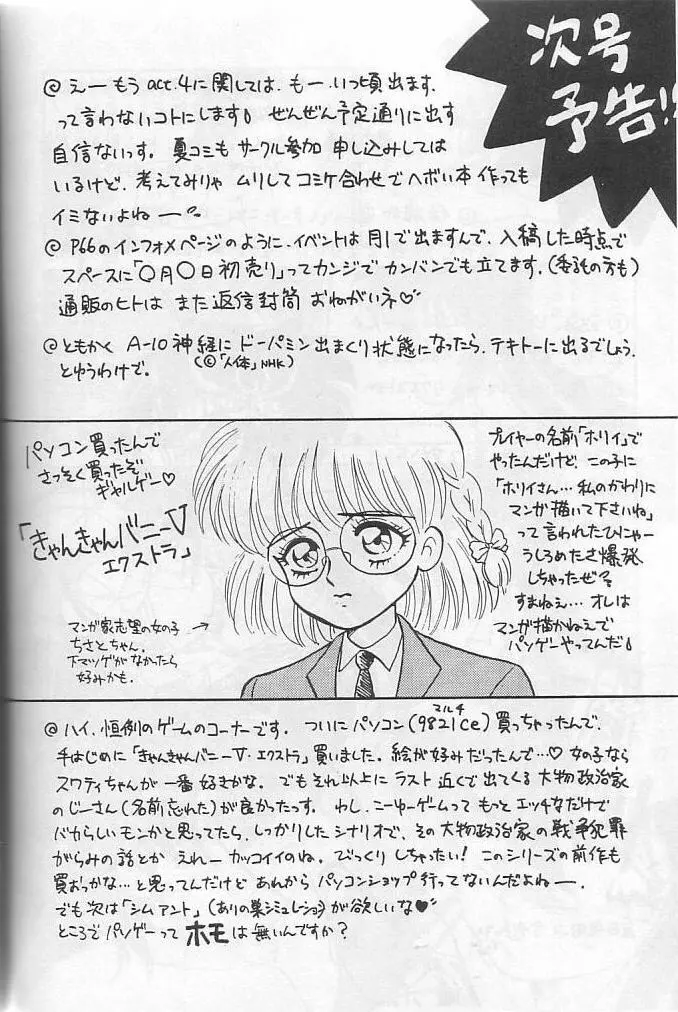 次号
予告!!
@ えーもう act.4に関しては、もー、いつ頃出ます、
って言わないコトにします。ぜんぜん予定通りに出す
自信ないっす。夏コミも サークル参加 申し込みしては
いるけど、考えてみりゃ ムリしてコミケ合わせで ヘボい本 作っても
イミないよねー
@ P66のインフォメページのように、イベントは 月1で出ますんで、入稿した時点で
スペースに「○月○日初売り」ってカンジで カンバンでも立てます。(委託の方も)
通販のヒトは また返信封筒 おねがいネ♡
@ともかく A-10神経に ドーパミン出まくり状態になったら、テキトーに出るでしょう。
(©「人体」NHK)
とゆうわけで。
パソコン買ったんで
さっそく買ったぞ
ギャルゲー♡
「きゃんきゃんバニーV
エクストラ」
マンガ家志望の女の子 →
ちさとちゃん。
下マツゲがなかったら
好みかも。
プレイヤーの名前「ホリイ」で
やったんだけど、この子に
「ホリイさん…私のかわりに
マンガ描いて下さいね」
って言われたひにゃー
うしろめたさ爆発
しちゃったぜ
すまねえ…オレは
マンガ描かねえで
パソゲーやってんだ
@ハイ、恒例のゲームのコーナーです。ついにパソコン(9821Ce)買っちゃったんで、
マルチ
手はじめに「きゃんきゃんバニーV・エクストラ」買いました。絵が好みだったんで…♡ 女の子なら
スワティちゃんが一番好きかな。でもそれ以上に ラスト近くで出てくる 大物政治家
のじーさん(名前忘れた)が良かったっす。わし、こーゆーゲームって もっと エッチなだけで
バカらしいモンかと思ってたら、しっかりしたシナリオで、その大物政治家の戦争犯罪
がらみの話とか えれーカッコイイのね。びっくりしちゃったい! このシリーズの前作も
買おっかな…と思ってんだけど あれから パソコンショップ行ってないんだよねー。
でも次は「シムアント」(ありの巣シミュレーション)が欲しいな♥
ところでパソゲーって ホモ は無いんですか?